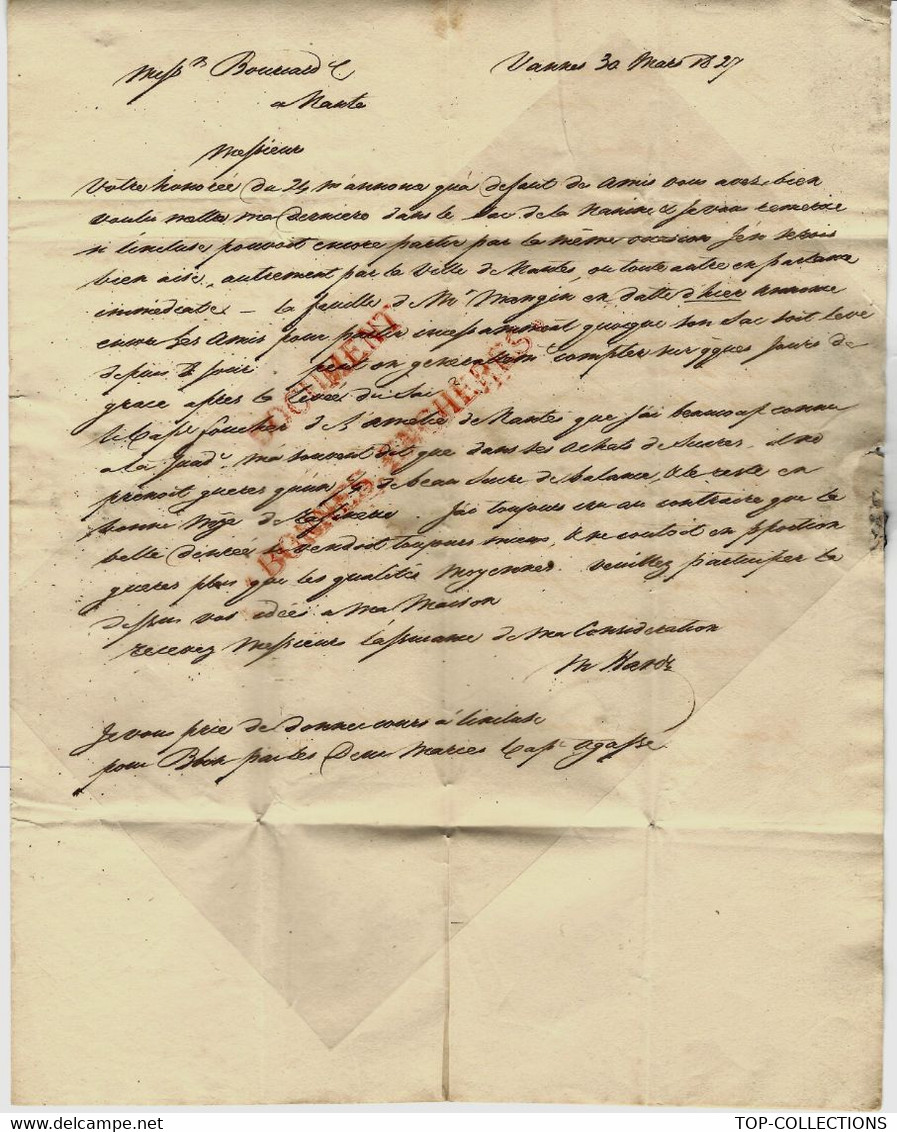 Mess.rs Bourcard
Vannes 30 Mars 1827
a Nantes
Messieurs
Votre honorée du 24 m'annonce qu'a defaut des Amis vous avez bien
voulu mettre ma derniere dans le Sac de la Nanine & je vous remercie
si l'incluse pouvoit encore partir par la même occasion j'en serois
bien aise, autrement par la Ville de Nantes, ou toute autre en partance
immediate - La feuille de Mr Mangin en datte d'hier annonce
encore Les Amis pour partir incessamment quoique son Sac soit levé
depuis jours. peut on generalem.t compter sur qques Jours de
grace après la Levée du Sac?
le Cap.e Foucher de L'Amelie de Nantes que j'ai beaucoup connu
a La Guad.e m'a souvent dit que dans ses achats de Sucres il ne
prenoit gueres qu'un de beau Sucre de balance, & le reste en
bonne
J'ai toujours cru au contraire que la
belle denrée se vendoit toujours mieux, & ne coutoit en pportion
gueres plus que les qualités moyennes. veuillez participer la
dessus vos idées a ma Maison
recevez Messieurs l'assurance de ma Consideration
Je vous prie de donner cours à l'incluse
pour par Les Deux Maries Cap.e Agasse.
DOCUMENT
BONNES ENCHERES
TOP-COLLECTIONS